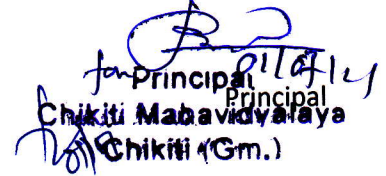 for Principal
Principal
Chikiti Mahavidyalaya
Chikiti (Gm.)